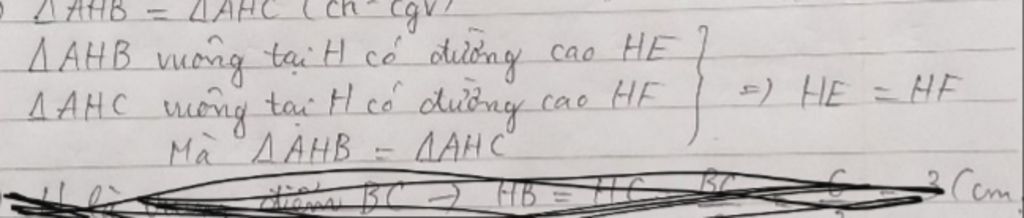 ΔAHB = ΔAHC (ch-cgv)
ΔAHB vuông tại H có đường cao HE
ΔAHC vuông tại H có đường cao HF
Mà ΔAHB = ΔAHC
} => HE = HF
H là điểm BC → HB = HC = BC = 6 = 3 (cm